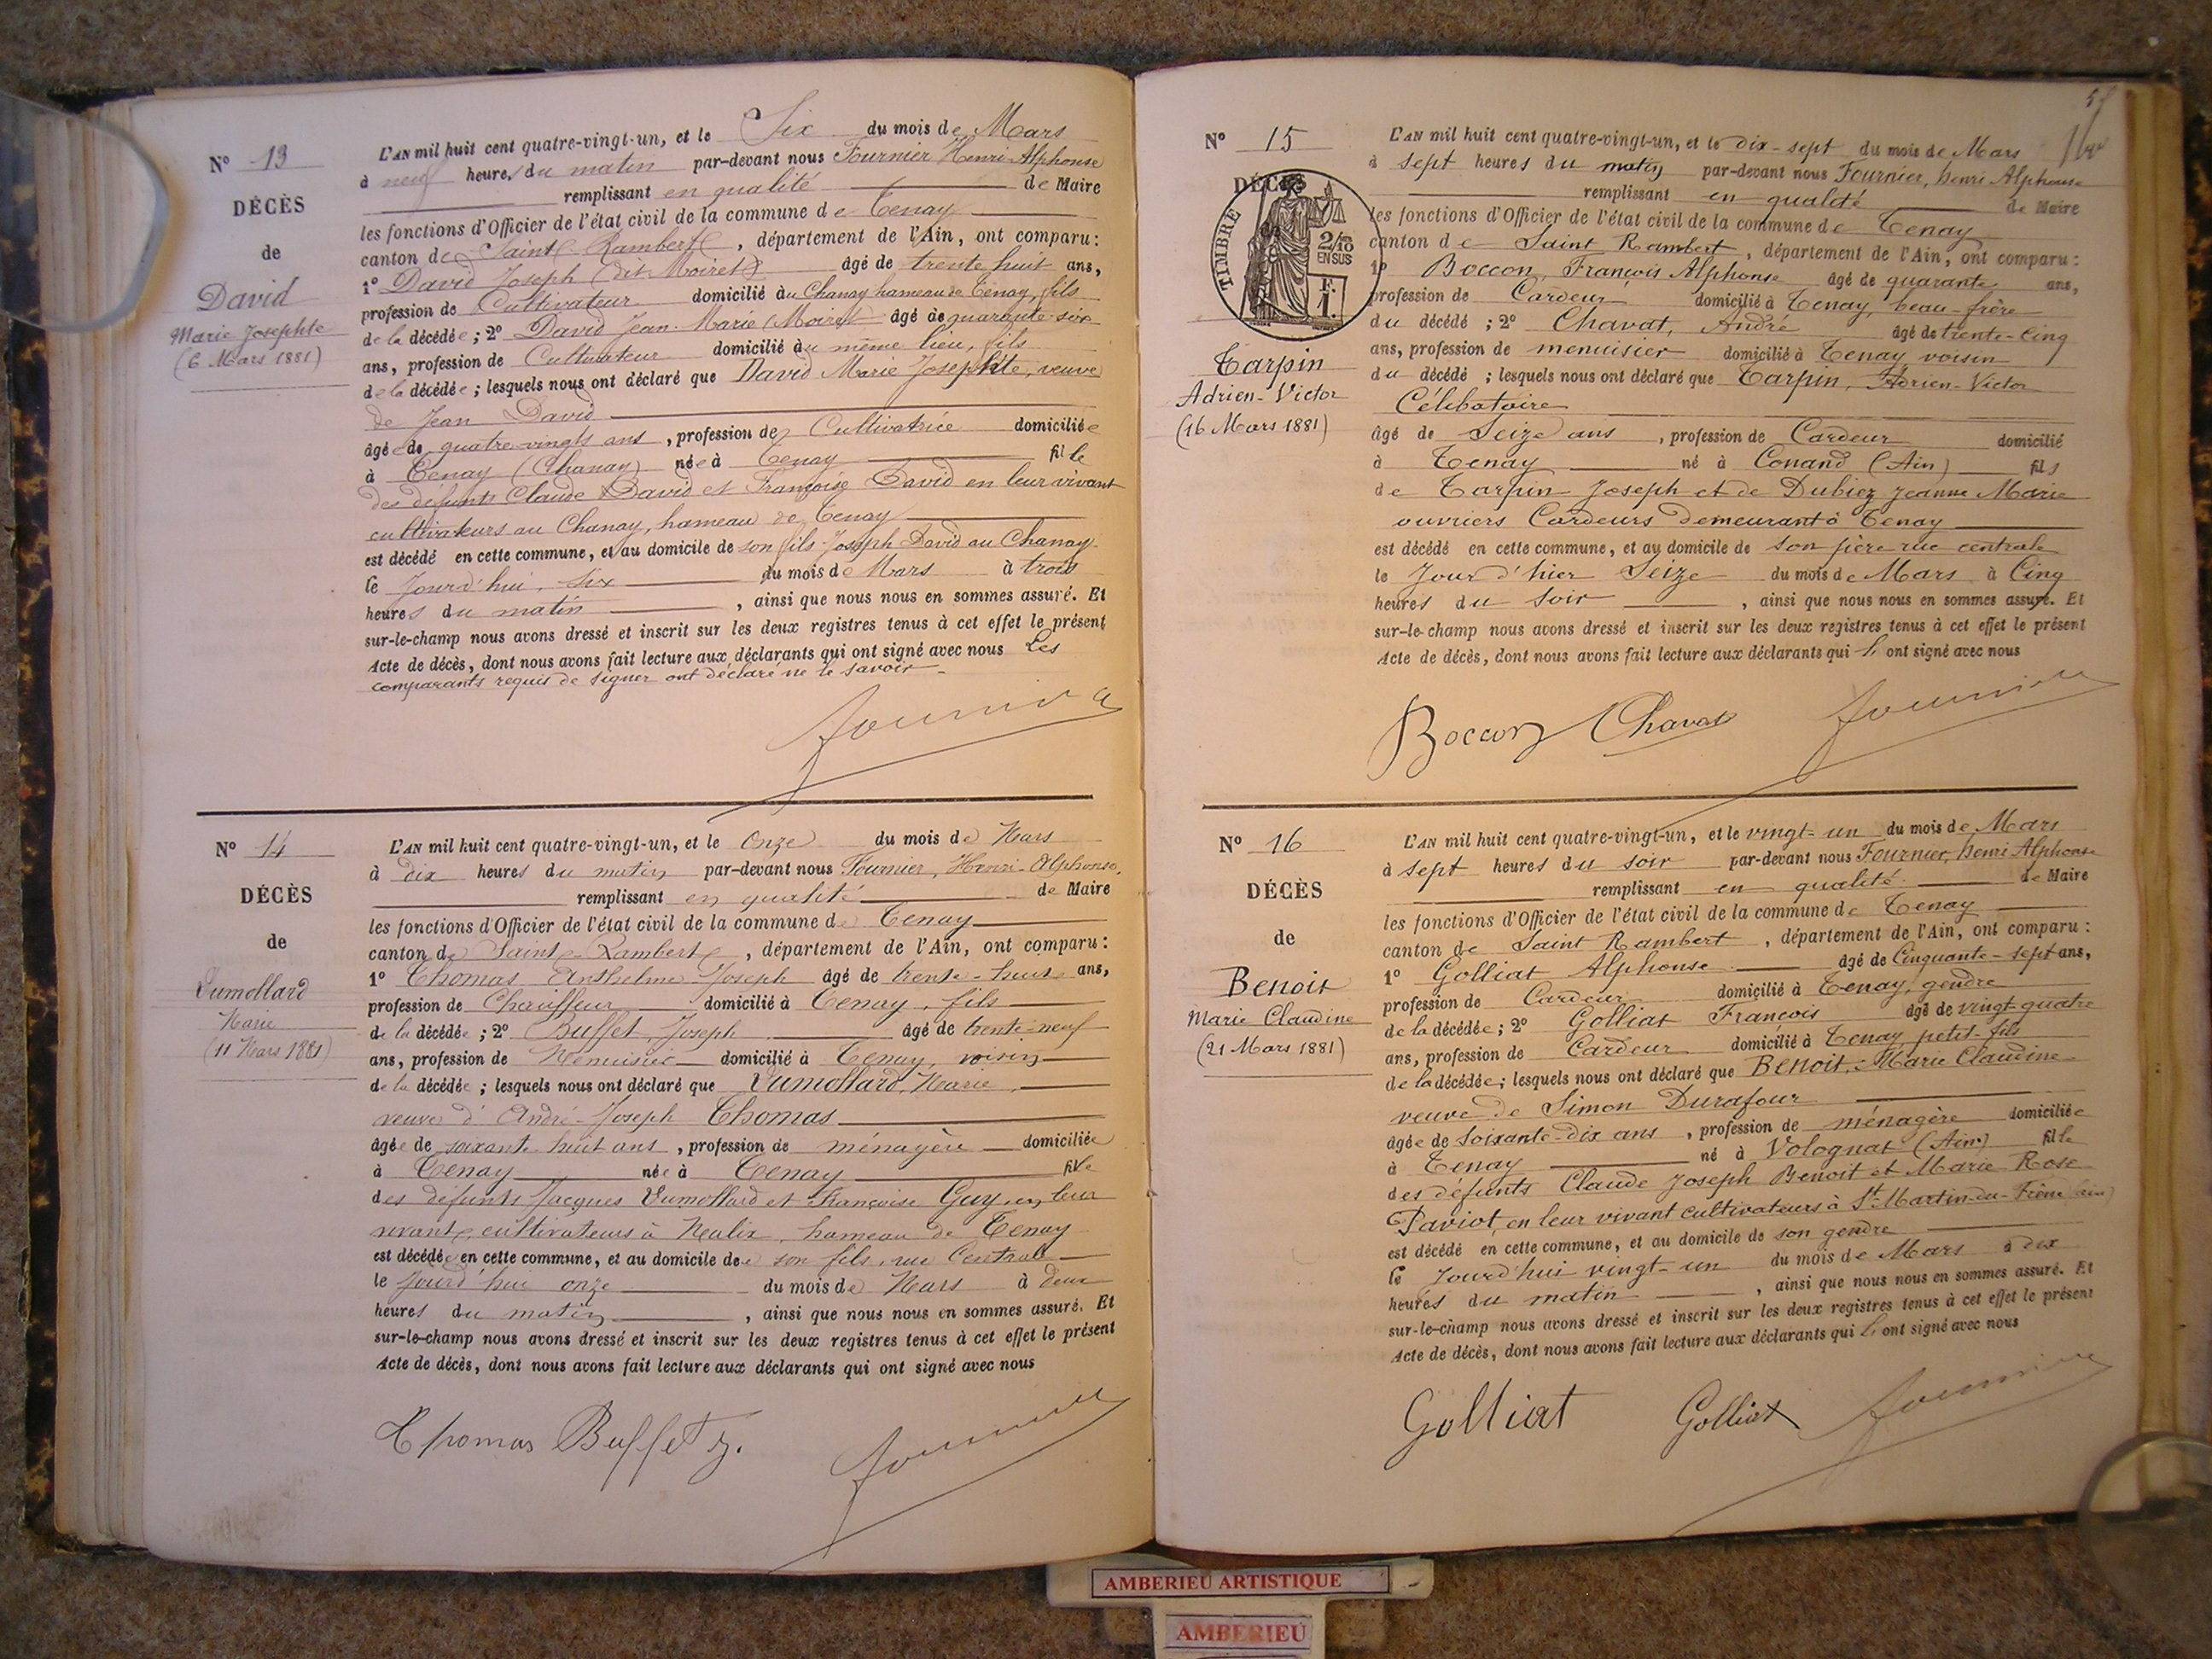 Nº 13
DÉCÈS
de
David
Marie Josephte
(6 Mars 1881)
L'AN mil huit cent quatre-vingt-un, et le Six du mois de Mars
à neuf heures du matin par-devant nous Fournier Henri Alphonse
remplissant en qualité de Maire
les fonctions d'Officier de l'état civil de la commune de Tenay
canton de Saint-Rambert, département de l'Ain, ont comparu:
1º David Joseph (dit Moiret) âgé de trente huit ans,
profession de Cultivateur domicilié au Chanay hameau de Tenay, fils
de la décédée; 2º David Jean-Marie (Moiret) âgé de quarante-six
ans, profession de Cultivateur domicilié au même lieu, fils
de la décédée; lesquels nous ont déclaré que David Marie Josephte, veuve
de Jean David
âgée de quatre-vingts ans, profession de Cultivatrice domiciliée
à Tenay (Chanay) née à Tenay fille
des défunts Claude David et Françoise David en leur vivant
cultivateurs au Chanay, hameau de Tenay
est décédé en cette commune, et au domicile de son fils Joseph David au Chanay
le jourd'hui, six du mois de Mars à trois
heures du matin, ainsi que nous nous en sommes assuré. Et
sur-le-champ nous avons dressé et inscrit sur les deux registres tenus à cet effet le présent
Acte de décès, dont nous avons fait lecture aux déclarants qui ont signé avec nous Les
comparants requis de signer ont déclaré ne le savoir
Fournier
Nº 14
DÉCÈS
de
Dumollard
Marie
(11 Mars 1881)
L'AN mil huit cent quatre-vingt-un, et le Onze du mois de Mars
à dix heures du matin par-devant nous Fournier, Henri-Alphonse,
remplissant en qualité de Maire
les fonctions d'Officier de l'état civil de la commune de Tenay
canton de Saint-Rambert, département de l'Ain, ont comparu:
1º Thomas Anthelme Joseph âgé de trente-huit ans,
profession de Chauffeur domicilié à Tenay, fils
de la décédée; 2º Buffet, Joseph âgé de trente-neuf
ans, profession de Menuisier domicilié à Tenay, voisin
de la décédée; lesquels nous ont déclaré que Dumollard, Marie,
veuve d'André-Joseph Thomas
âgée de soixante-huit ans, profession de ménagère domiciliée
à Tenay née à Tenay fille
des défunts Jacques Dumollard et Françoise Guy en leur
vivant, cultivateurs à hameau de Tenay
est décédée en cette commune, et au domicile de son fils, rue Centrale
le jourd'hui onze du mois de Mars à deux
heures du matin, ainsi que nous nous en sommes assuré. Et
sur-le-champ nous avons dressé et inscrit sur les deux registres tenus à cet effet le présent
Acte de décès, dont nous avons fait lecture aux déclarants qui ont signé avec nous
Thomas Buffet J.
Fournier
Nº 15
DÉCÈS
TIMBRE
2/10 EN SUS
F. 1.
Tarpin
Adrien-Victor
(16 Mars 1881)
L'AN mil huit cent quatre-vingt-un, et le dix-sept du mois de Mars
à sept heures du matin par-devant nous Fournier, henri Alphonse
remplissant en qualité de Maire
les fonctions d'Officier de l'état civil de la commune de Tenay
canton de Saint Rambert, département de l'Ain, ont comparu:
1º Boccon, François Alphonse âgé de quarante ans,
profession de Cardeur domicilié à Tenay, beau-frère
du décédé; 2º Chavat, André âgé de trente-cinq
ans, profession de menuisier domicilié à Tenay, voisin
du décédé; lesquels nous ont déclaré que Tarpin, Adrien-Victor
Célibataire
âgé de Seize ans, profession de Cardeur domicilié
à Tenay né à Conand (Ain) fils
de Tarpin Joseph et de Dubiez Jeanne Marie
ouvriers Cardeurs demeurant à Tenay
est décédé en cette commune, et au domicile de son père rue centrale
le Jour d'hier Seize du mois de Mars à Cinq
heures du soir, ainsi que nous nous en sommes assuré. Et
sur-le-champ nous avons dressé et inscrit sur les deux registres tenus à cet effet le présent
Acte de décès, dont nous avons fait lecture aux déclarants qui ont signé avec nous
Boccon Chavat Fournier
Nº 16
DÉCÈS
de
Benoit
Marie Claudine
(21 Mars 1881)
L'AN mil huit cent quatre-vingt-un, et le vingt-un du mois de Mars
à sept heures du soir par-devant nous Fournier, henri Alphonse
remplissant en qualité de Maire
les fonctions d'Officier de l'état civil de la commune de Tenay
canton de Saint Rambert, département de l'Ain, ont comparu:
1º Golliat Alphonse âgé de Cinquante-sept ans,
profession de Cardeur domicilié à Tenay, gendre
de la décédée; 2º Golliat François âgé de vingt-quatre
ans, profession de Cardeur domicilié à Tenay petit-fils
de la décédée; lesquels nous ont déclaré que Benoit, Marie Claudine
veuve de Simon Durafour
âgée de soixante-dix ans, profession de ménagère domiciliée
à Tenay né à Volognat (Ain) fille
des défunts Claude Joseph Benoit et Marie Rose
Paviot, en leur vivant cultivateurs à St-Martin-du-Frêne (Ain)
est décédé en cette commune, et au domicile de son gendre
le Jourd'hui vingt-un du mois de Mars à dix
heures du matin, ainsi que nous nous en sommes assuré. Et
sur-le-champ nous avons dressé et inscrit sur les deux registres tenus à cet effet le présent
Acte de décès, dont nous avons fait lecture aux déclarants qui ont signé avec nous
Golliat Golliat Fournier
AMBERIEU ARTISTIQUE
AMBERIEU